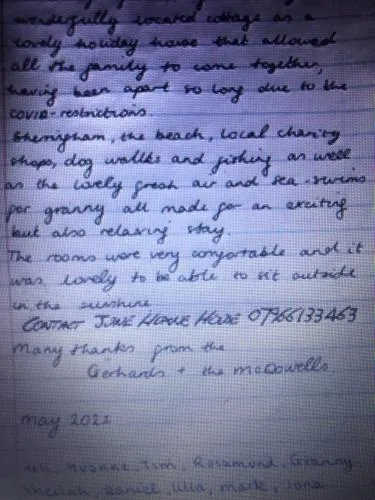 wonderfully located cottage as a
lovely holiday house that allowed
all the family to come together,
having been apart so long due to the
covid-restrictions.
Sheringham, the beach, local charity
shops, dog wallks and fishing as well
as the lively fresh air and sea-swims
for granny all made for an exciting
but also relaxing stay.
The rooms were very comfortable and it
was lovely to be able to sit outside
in the sunshine
CONTACT HOUSE 07966133463
Many thanks from the
Gerhards + the McDowells.
May 2022
Yvonne, Tim, Rosamond, Granny
Sheilah, Daniel, Ulla, Mark, Jana